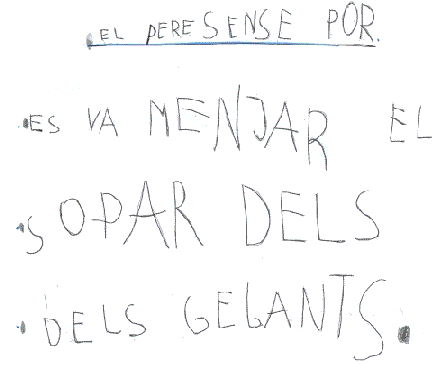 EL PERE SENSE POR.
ES VA MENJAR EL
SOPAR DELS
DELS GEGANTS.